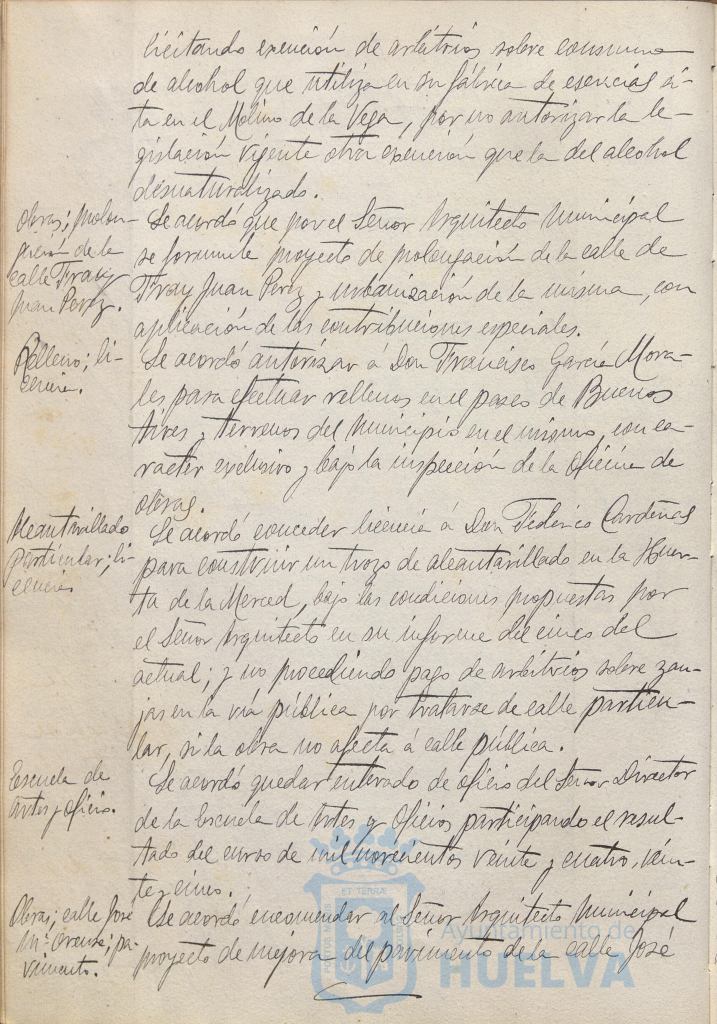 licitando exención de arbitrios sobre consumo
de alcohol que utiliza en su fábrica de esencias si-
ta en el Molino de la Vega, por no autorizar la le-
gislación vigente otra exención que la del alcohol
desnaturalizado.
Obras; prolon-
gación de la
calle Fray
Juan Perez.
Se acordó que por el Señor Arquitecto Municipal
se formule proyecto de prolongación de la calle de
Fray Juan Perez y urbanización de la misma, con
aplicación de las contribuciones especiales.
Relleno; li-
cencia.
Se acordó autorizar á Don Francisco García Mora-
les para efectuar rellenos en el paseo de Buenos
Aires y terrenos del Municipio en el mismo, con ca-
racter exclusivo y bajo la inspección de la Oficina de
obras.
Alcantarillado
particular; li-
cencia
Se acordó conceder licencia á Don Federico Cardeñas
para construir un trozo de alcantarillado en la Huer-
ta de la Merced, bajo las condiciones propuestas por
el Señor Arquitecto en su informe del cinco del
actual; y no procediendo pago de arbitrios sobre zan-
jas en la vía pública por tratarse de calle particu-
lar, si la obra no afecta á calle pública.
Escuela de
Artes y Oficios.
Se acordó quedar enterado de oficio del Señor Director
de la Escuela de Artes y Oficios participando el resul-
tado del curso de mil novecientos veinte y cuatro, vein-
te y cinco.
Obras; calle José
M. Orense; pa-
vimento.
Se acordó encomendar al Señor Arquitecto Municipal
proyecto de mejora del pavimento de la calle José
Ayuntamiento de
HUELVA